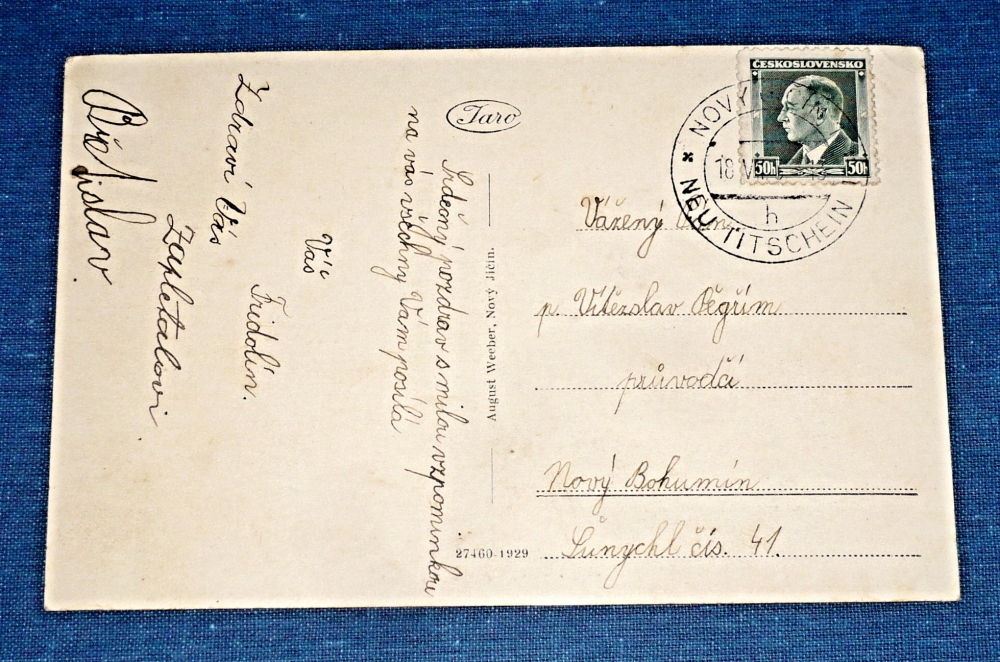 Taro
Srdečný pozdrav s milou vzpomínkou
na vás všechny Vám posílá
Váš
Fridolín.
Zdraví Vás
Zapletalovi
August Weeber, Nový Jičín.
27460-1929
ČESKOSLOVENSKO
50h 50h
NOVÝ
18 VI
h
NEU TITSCHEIN
Vážený
p. Vítězslav Pěgřím
průvodčí
Nový Bohumín
Šunychl čís. 41.